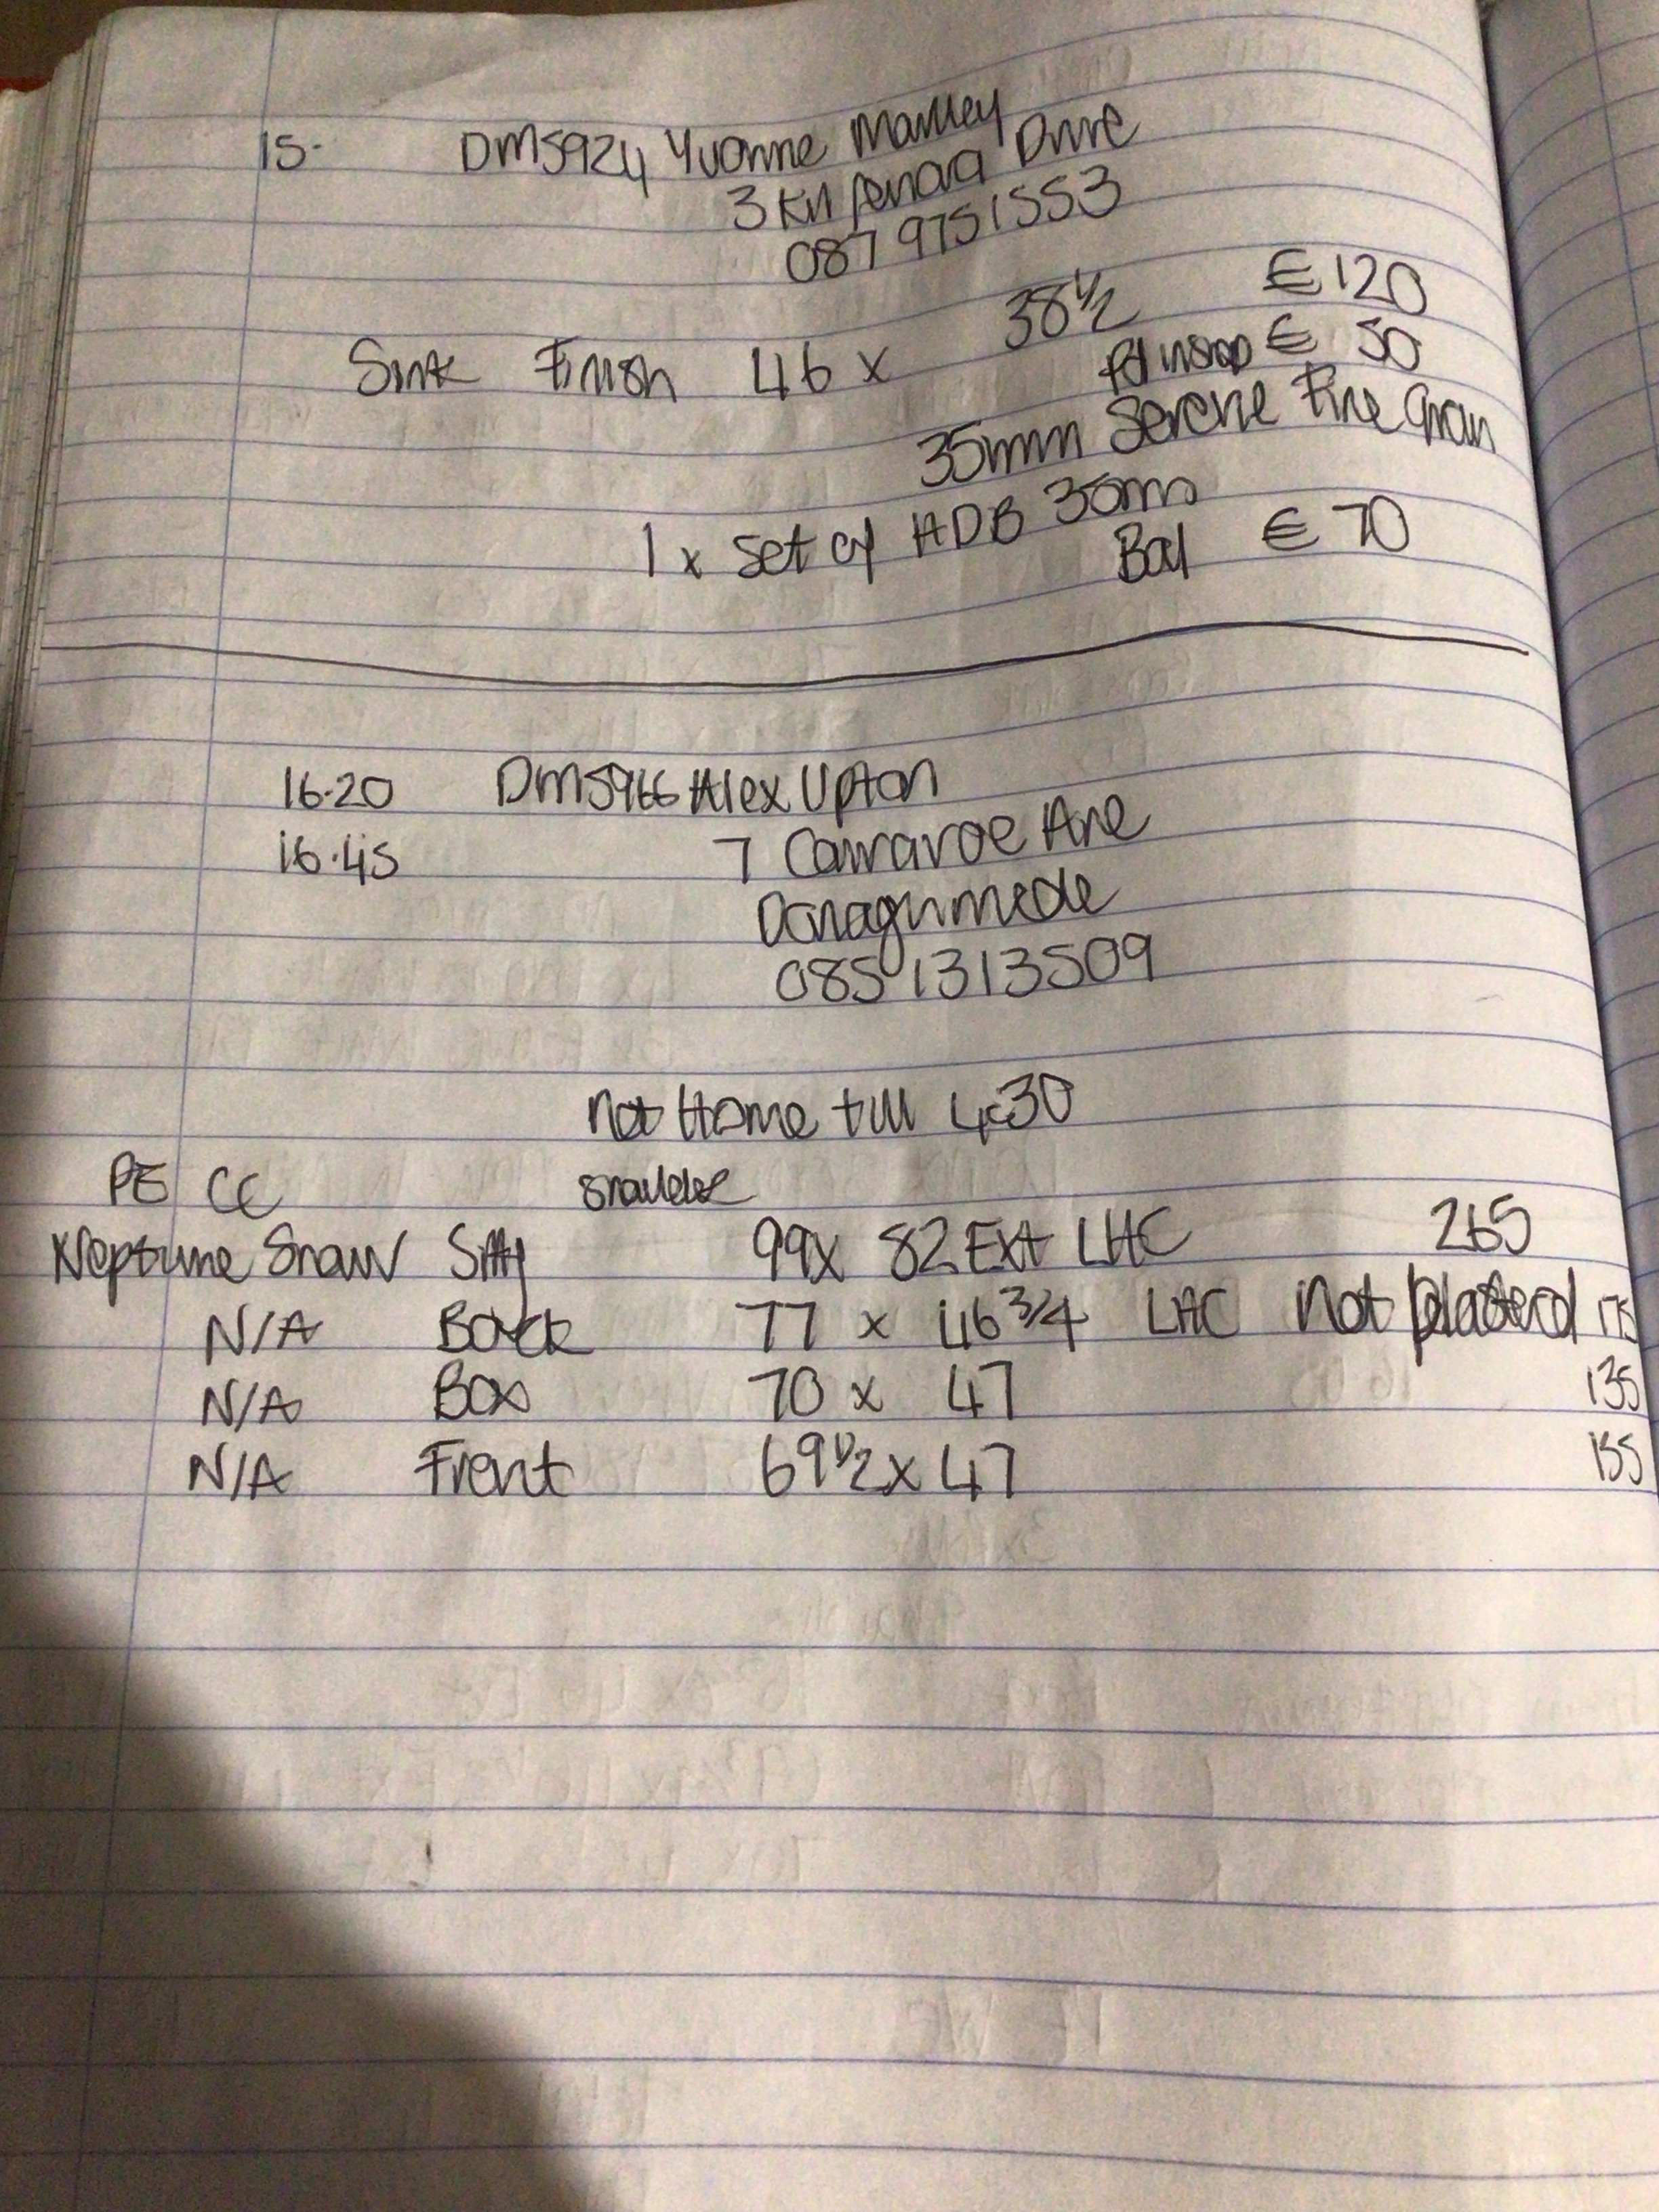 15- DM5924 Yvonne Manley
3 Kilfenora Drive
087 9751553
Sink Finish 46 x 38 1/2 € 120
Pd in shop € 50
35mm Serene Fine Grain
1 x Set of HDB 35mm
Bal € 70
16.20 DM5966 Alex Upton
16.45 7 Carraroe Ave
Donaghmede
085 1313509
Not Home till 4.30
PE CC
Neptune Snow Sitt 99x 82 Ext LHC 265
N/A Back 77 x 46 3/4 LHC Not plastered 175
N/A Box 70 x 47 135
N/A Front 69 1/2 x 47 135